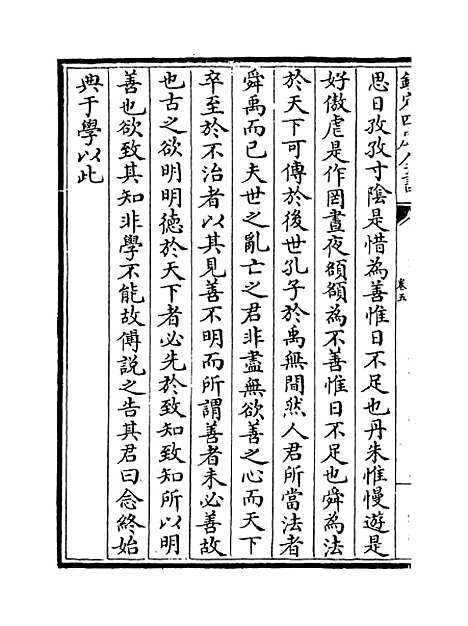 欽定四庫全書
卷五
思日孜孜寸陰是惜為善惟日不足也丹朱惟慢遊是
好傲虐是作罔晝夜頟頟為不善惟日不足也舜為法
於天下可傳於後世孔子於禹無間然人君所當法者
舜禹而已夫世之亂亡之君非盡無欲善之心而天下
卒至於不治者以其見善不明而所謂善者未必善故
也古之欲明明徳於天下者必先於致知致知所以明
善也欲致其知非學不能故傅説之告其君曰念終始
典于學以此